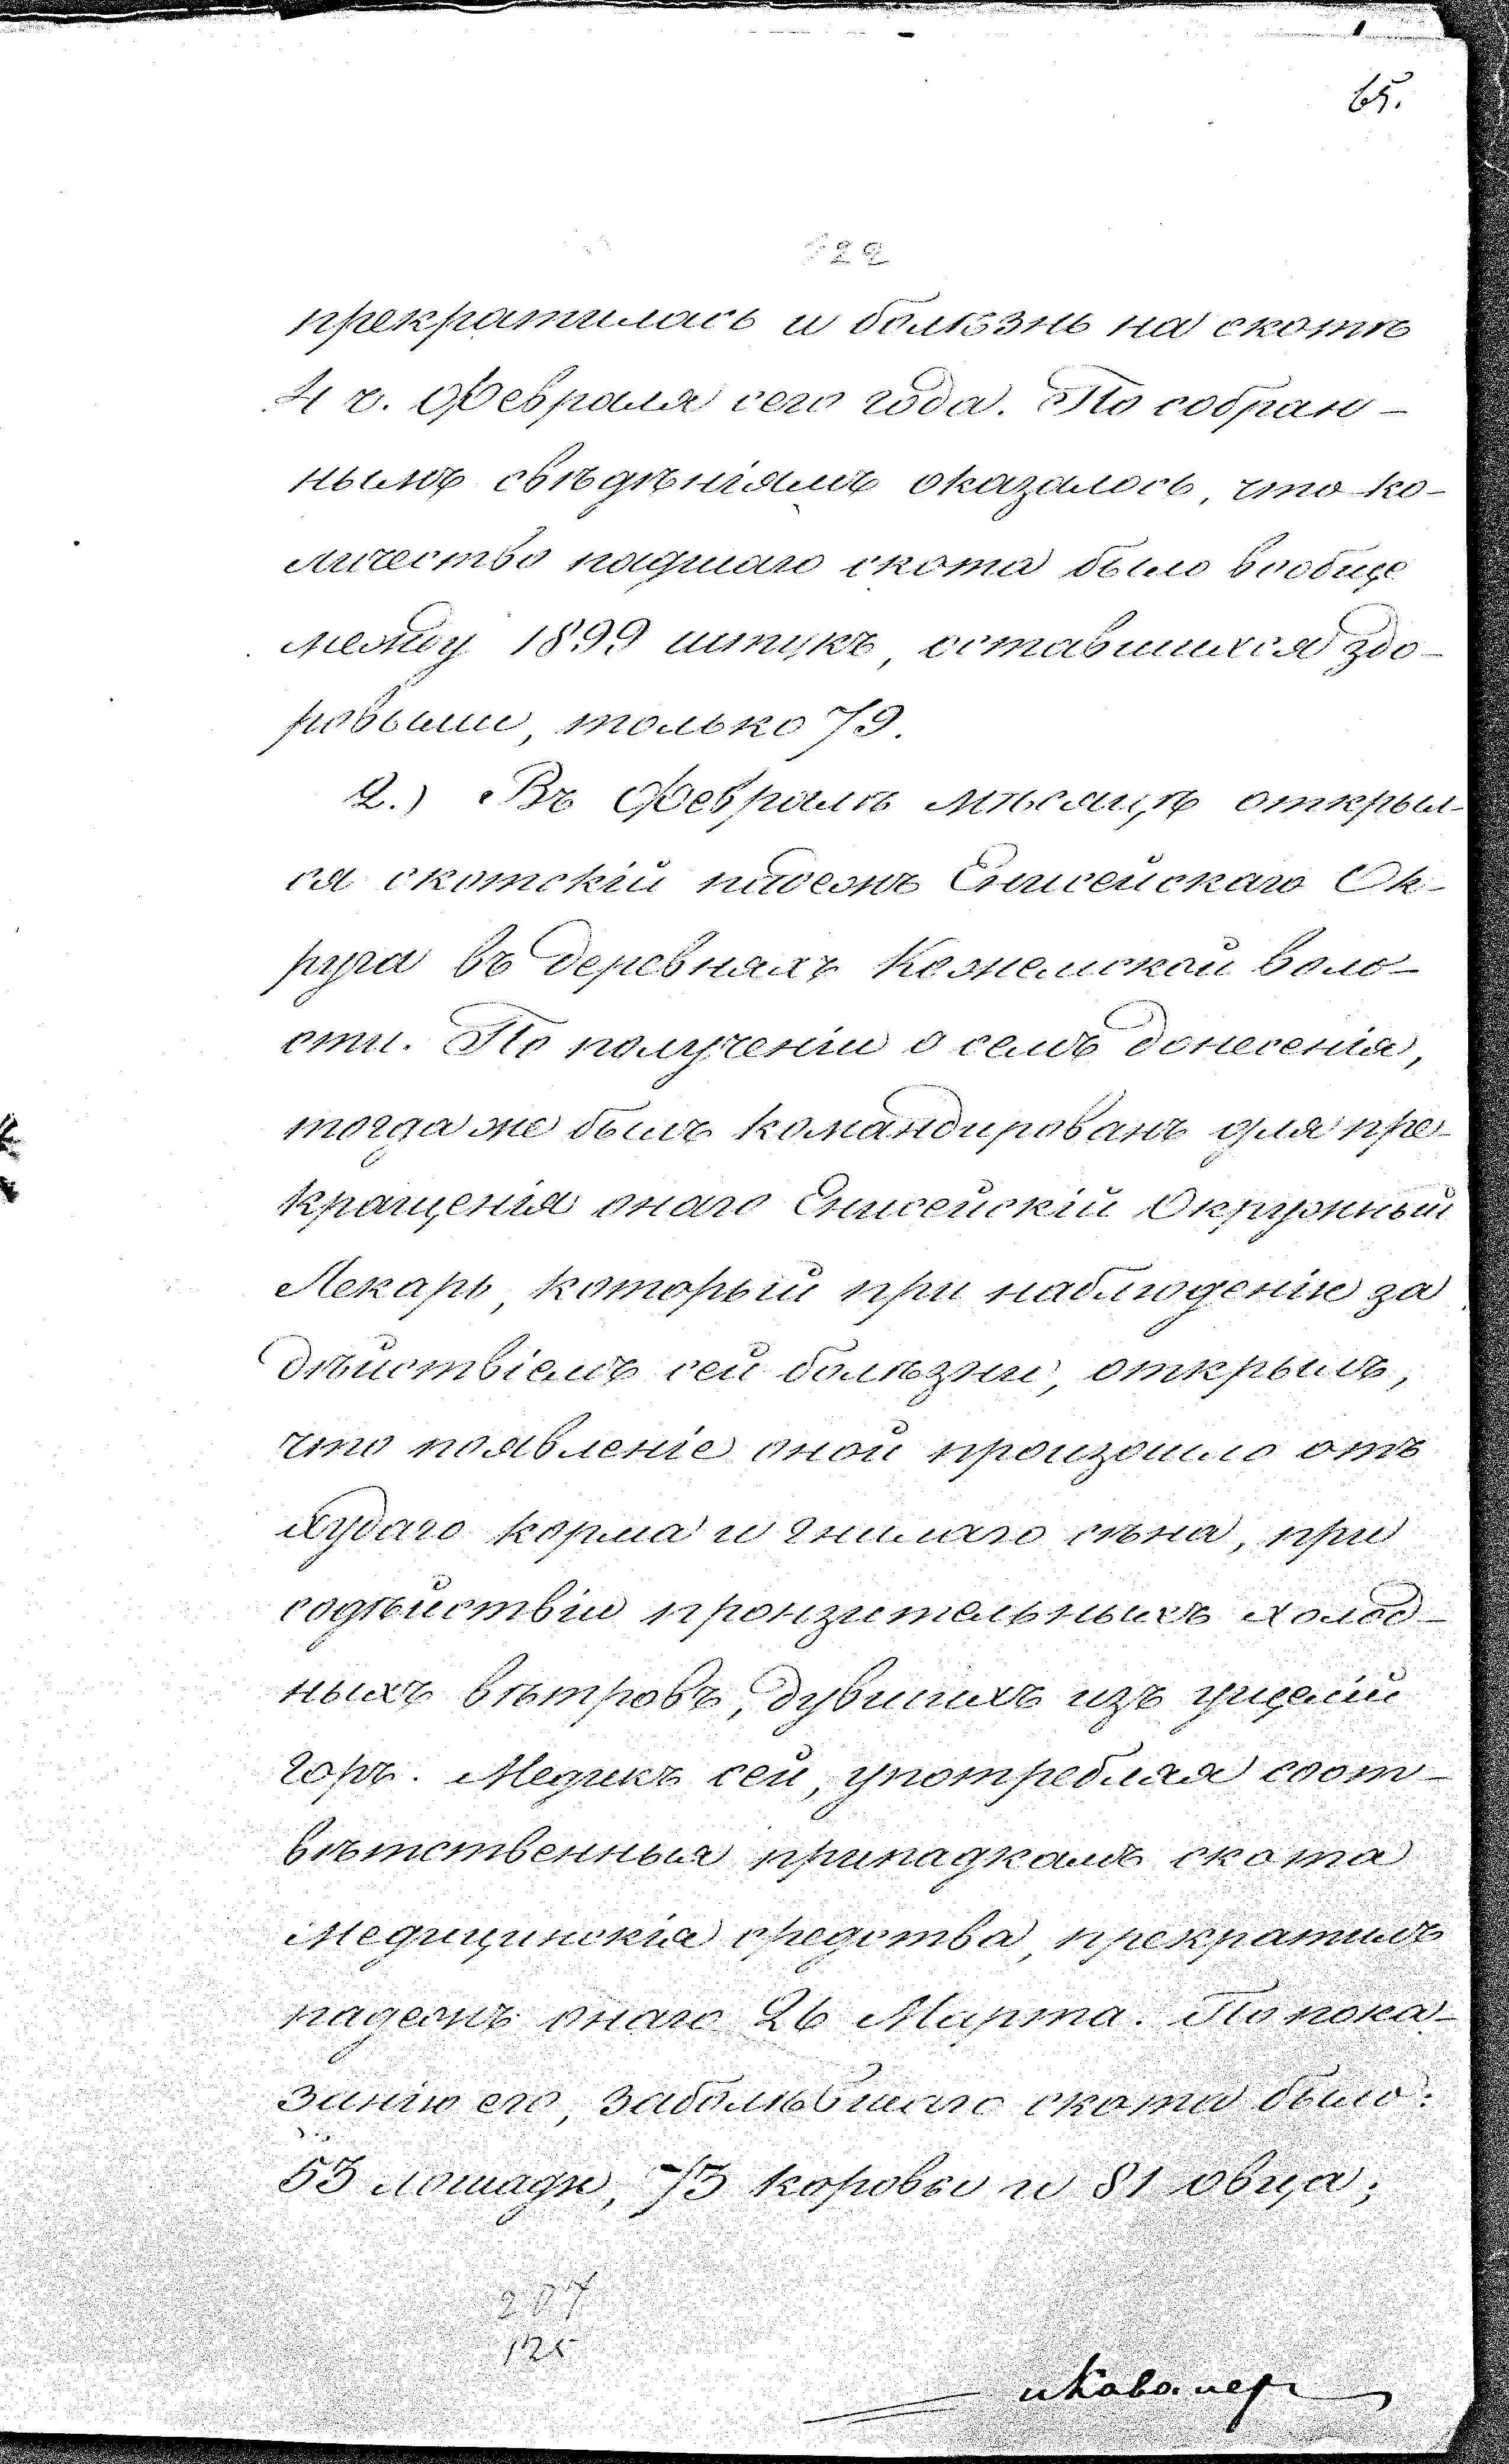 65.
122
прекратилась и болѣзнь на скотѣ
4 ч. Февраля сего года. По собран-
нымъ свѣдѣніямъ оказалось, что ко-
личество падшаго скота было вообще
между 1899 штукъ, оставшихся здо-
ровыми, только 79.
2.) Въ Февралѣ мѣсяцѣ открыл-
ся скотскій падежъ Енисейскаго Ок-
руга въ деревняхъ Кежемской воло-
сти. По полученіи о семъ донесенія,
тогда же былъ командированъ для пре-
кращенія онаго Енисейскій Окружный
Лекарь, который при наблюденіи за
дѣйствіемъ сей болѣзни, открылъ,
что появленіе оной произошло отъ
худаго корма и гнилаго сѣна, при
содѣйствіи пронзительныхъ холод-
ныхъ вѣтровъ, дувшихъ изъ ущелій
горъ. Медикъ сей, употребляя соот-
вѣтственныя припадкамъ скота
Медицинскія средства, прекратилъ
падежъ онаго 26 Марта. По пока-
занію его, заболѣвшаго скота было:
53 лошади, 73 коровы и 81 овца;
207
125
и Кавалеръ